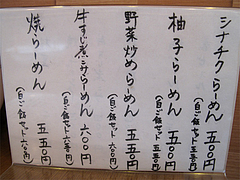 シナチクらーめん 五〇〇円
(白ご飯セット 五五〇円)
柚子らーめん 五〇〇円
(白ご飯セット 五五〇円)
野菜炒めらーめん 五五〇円
(白ご飯セット 六〇〇円)
牛すじ煮込みらーめん 六〇〇円
(白ご飯セット 六五〇円)
焼らーめん 五五〇円
(白ご飯セット 六〇〇円)